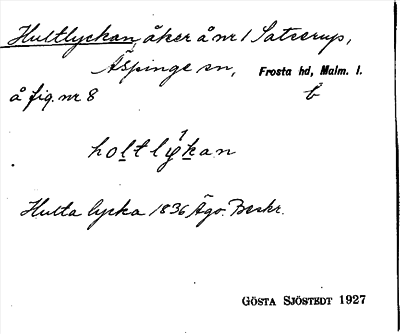 Hultlyckan, åker å nr 1 Satserup,
Äspinge sn, Frosta hd, Malm. l.
å fig. nr 8 b
holtlykan
Hulta lycka 1836 Ägo. Beskr.
GÖSTA SJÖSTEDT 1927